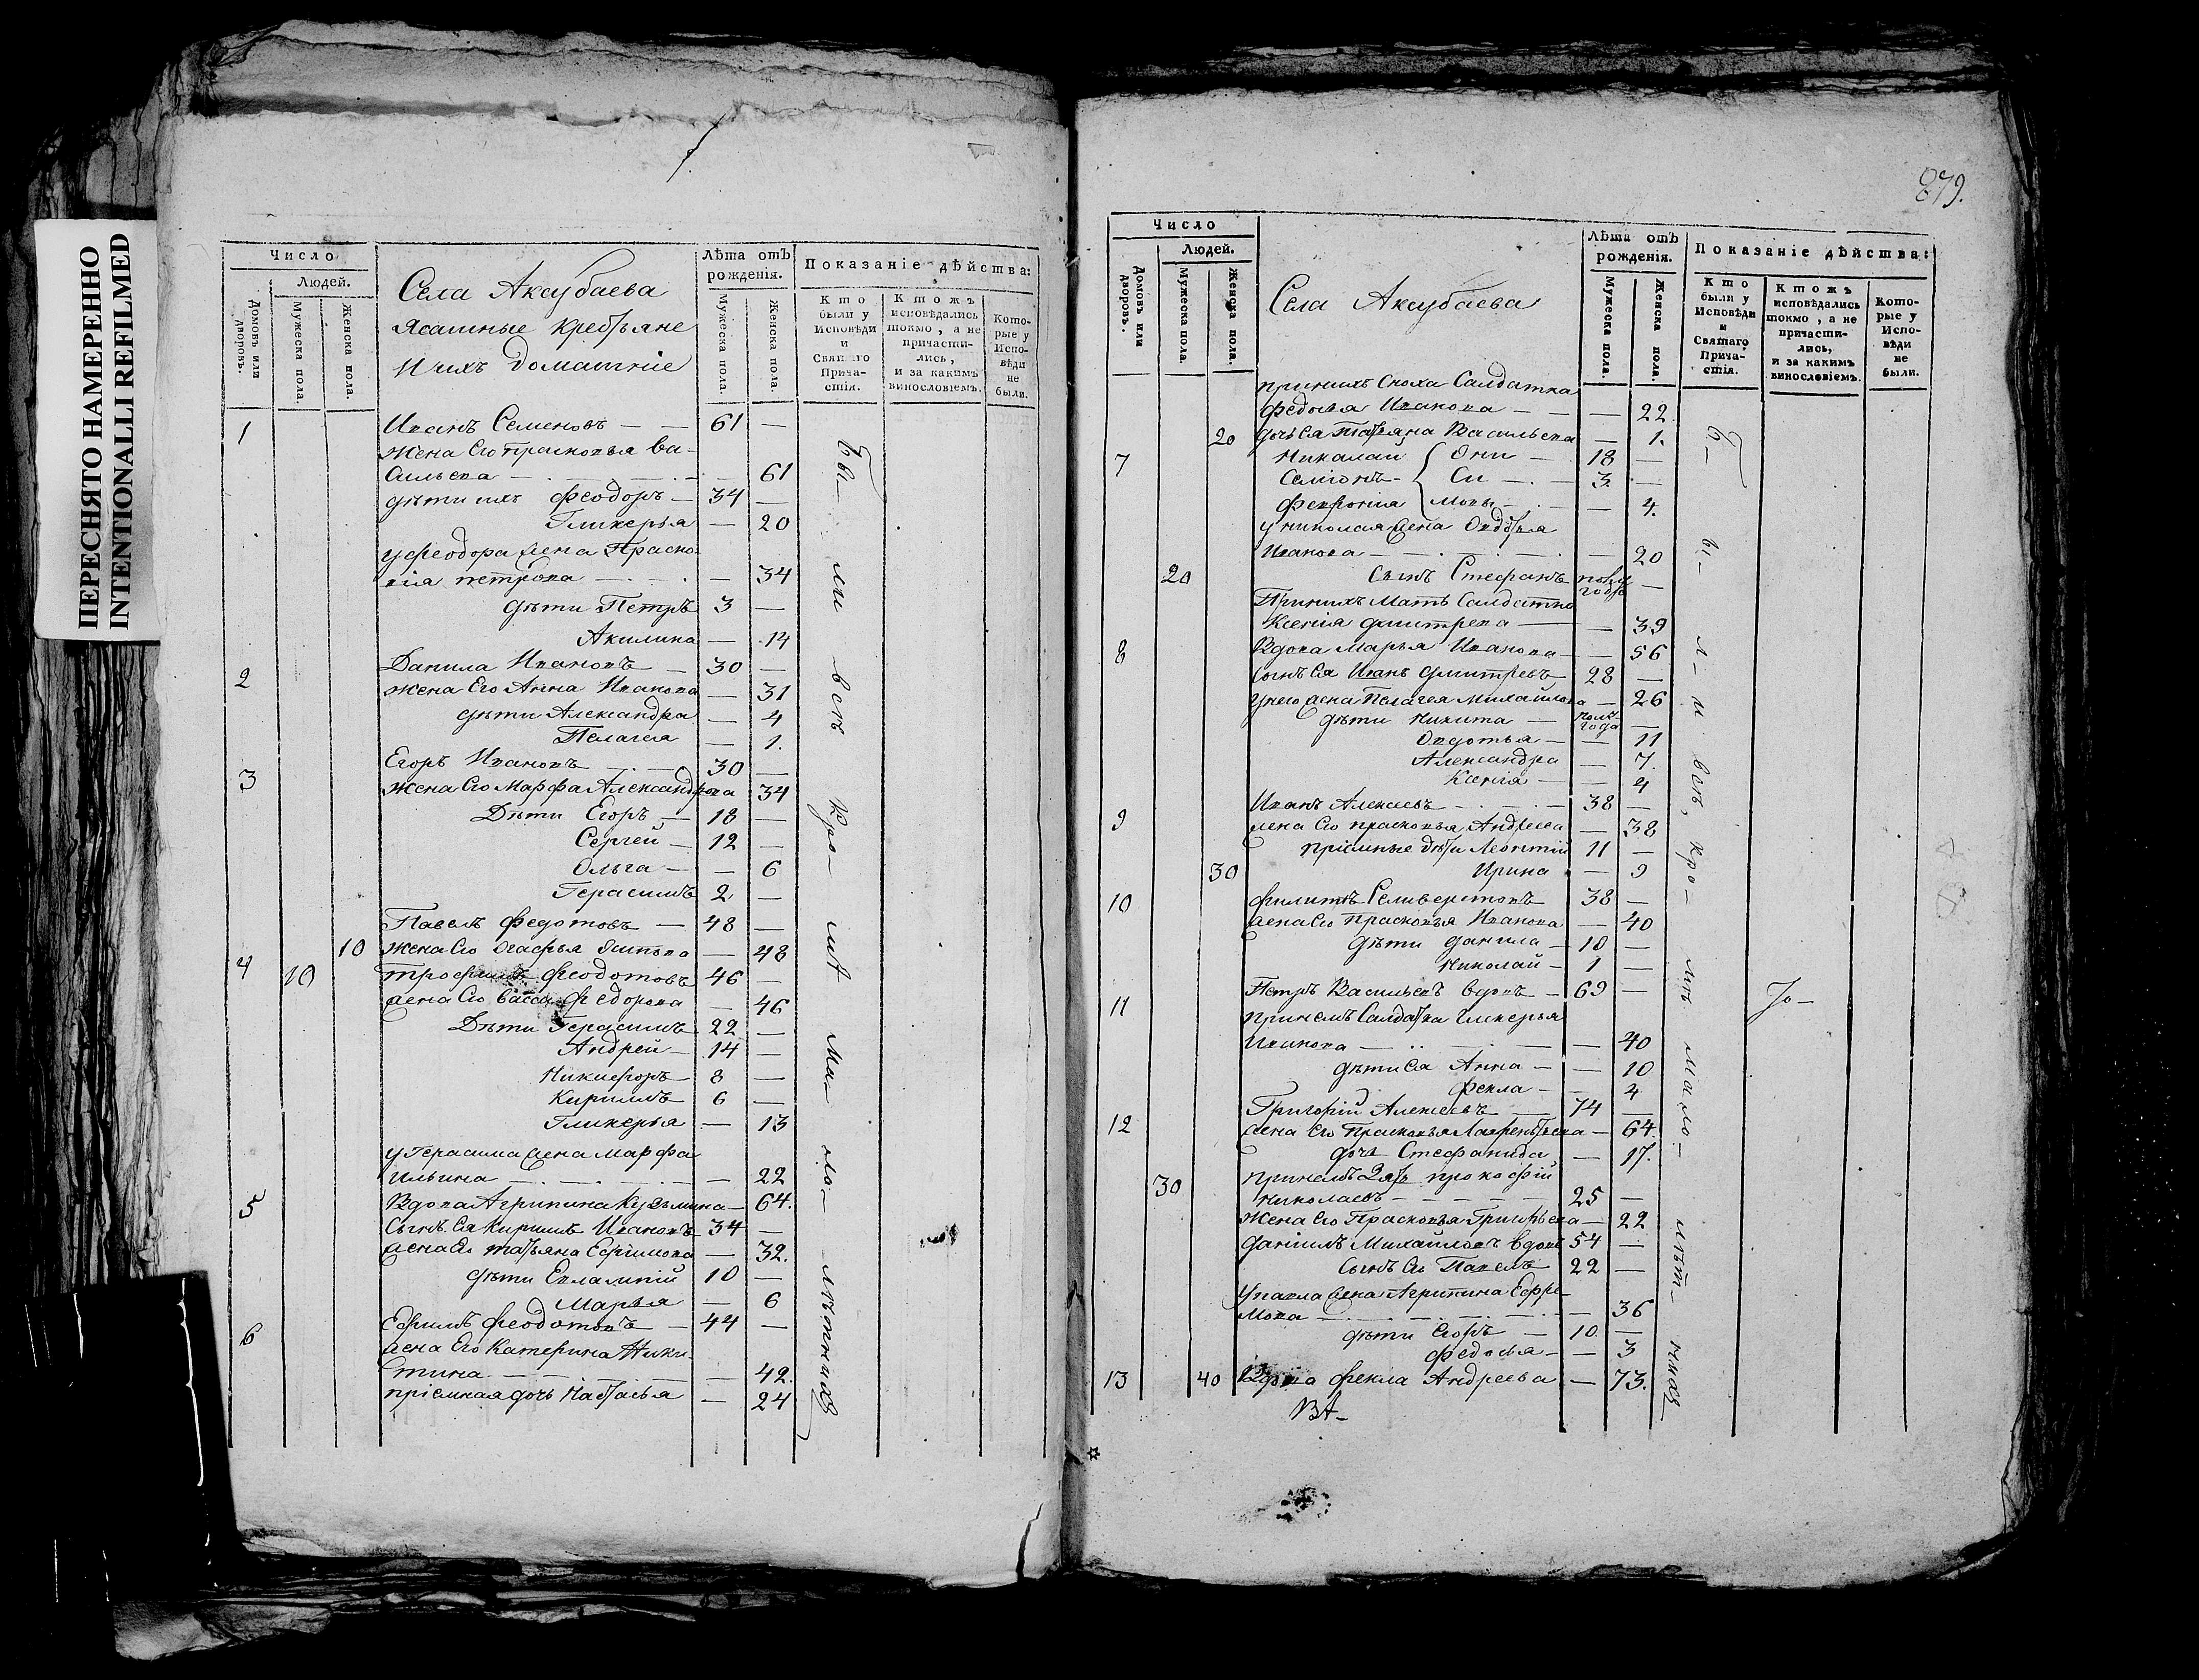 ПЕРЕСНЯТО НАМЕРЕННО
INTENTIONALLI REFILMED
Число
Людей.
Домовъ или дворовъ.
Мужеска пола.
Женска пола.
Села Аксубаева
Ясашные крестьяне
И ихъ домашніе
Лѣта отъ рожденія.
Мужеска пола.
Женска пола.
Показаніе дѣйства:
Кто были у Исповѣди и Святаго Прича-стія.
Ктожъ исповѣдались токмо, а не причасти-лись, и за какимъ винословіемъ.
Кото-рые у Испо-вѣди не были.
1 Иванъ Семеновъ — 61 —
Жена Его Прасковья Ва-
сильева — 61
дѣти ихъ Феодоръ — 34 —
Гликерья — 20
у Феодора жена Праско-
вія Петрова — 34
дѣти Петръ 3 —
Акилина — 14
2 Данила Ивановъ — 30 —
Жена Его Анна Иванова — 31
дѣти Александра — 4
Пелагея — 1.
3 Егоръ Ивановъ — 30 —
Жена Его Марфа Александрова 34
Дѣти Егоръ — 18 —
Сергей — 12 —
Ольга — — 6
Герасимъ 2 —
Павелъ Федотовъ — 48 —
10 Жена Его Агафья — 48
4 10 Трофимъ Феодотовъ 46 —
жена Его Васса Федорова — 46
Дѣти Герасимъ 22 —
Андрей — 14 —
Никифоръ — 8 —
Кирилъ 6 —
Гликерья — 13
у Герасима жена Марфа
Ильина — 22
5 Вдова Агрипина Кузьмина — 64.
Сынъ Ея Кирилъ Ивановъ 34 —
жена Его Татьяна Ефимова — 32.
дѣти Евлампій 10 —
Марья — 6
6 Ефимъ Феодотовъ — 44 —
жена Его Катерина Ники-
тина — 42.
пріемная дочь Настасья — 24
Бы- ли всѣ Кро- мѣ ма- ло- лѣтнихъ
879.
Число
Людей.
Домовъ или дворовъ.
Мужеска пола.
Женска пола.
Села Аксубаева
Лѣта отъ рожденія.
Мужеска пола.
Женска пола.
Показаніе дѣйства:
Кто были у Исповѣди и Святаго Прича-стія.
Ктожъ исповѣдались токмо, а не причасти-лись, и за какимъ винословіемъ.
Кото-рые у Испо-вѣди не были.
при нихъ сноха Салдатка
Федосья Иванова — — 22
20 дочь Ея Татьяна Васильева — 1.
7 Николай Они — 18 —
Семіонъ — 3. —
Феврониа — 4.
у Николая жена Овдотья
Иванова — 20
20 Сынъ Стефанъ полу года —
При нихъ Мать Салдатка
Ксенія Дмитрева — — 39
8 Вдова Марья Иванова — — 56
Сынъ Ея Иванъ Дмитревъ 28 —
у него жена Пелагея Михайлова — 26
дѣти Никита — полу- года —
Овдотья — — 11
Александра — 7.
Ксенія — — 4
9 Иванъ Алексеевъ — 38 —
жена Его Прасковья Андреева — 38
пріемные дѣти Леонтій 11 —
30 Ирина — 9
10 Филипъ Селиверстовъ 38 —
жена Его Прасковья Иванова — 40
дѣти Данила — 10 —
Николай — 1 —
11 Петръ Васильевъ вдовъ — 69 —
при немъ Салдатка Гликерья
Иванова — 40
дѣти Ея Анна — — 10
Фекла — — 4
12 Григорій Алексеевъ — 74 —
жена Его Прасковья Лаврентьева — 64.
дочь Стефанида — 17.
30 при немъ Зять Прокофій
Николаевъ — 25 —
Жена Его Прасковья Григорьева — 22
Даніилъ Михайловъ вдовъ 54 —
Сынъ Его Павелъ 22 —
у Павла жена Агрипина Ефи-
мова — 36
дѣти Егоръ — 10 —
Федосья — — 3
13 40 Вдова Фекла Андреева — 73.
Б- ы- л- и всѣ, кро- мѣ мало- лѣт- нихъ